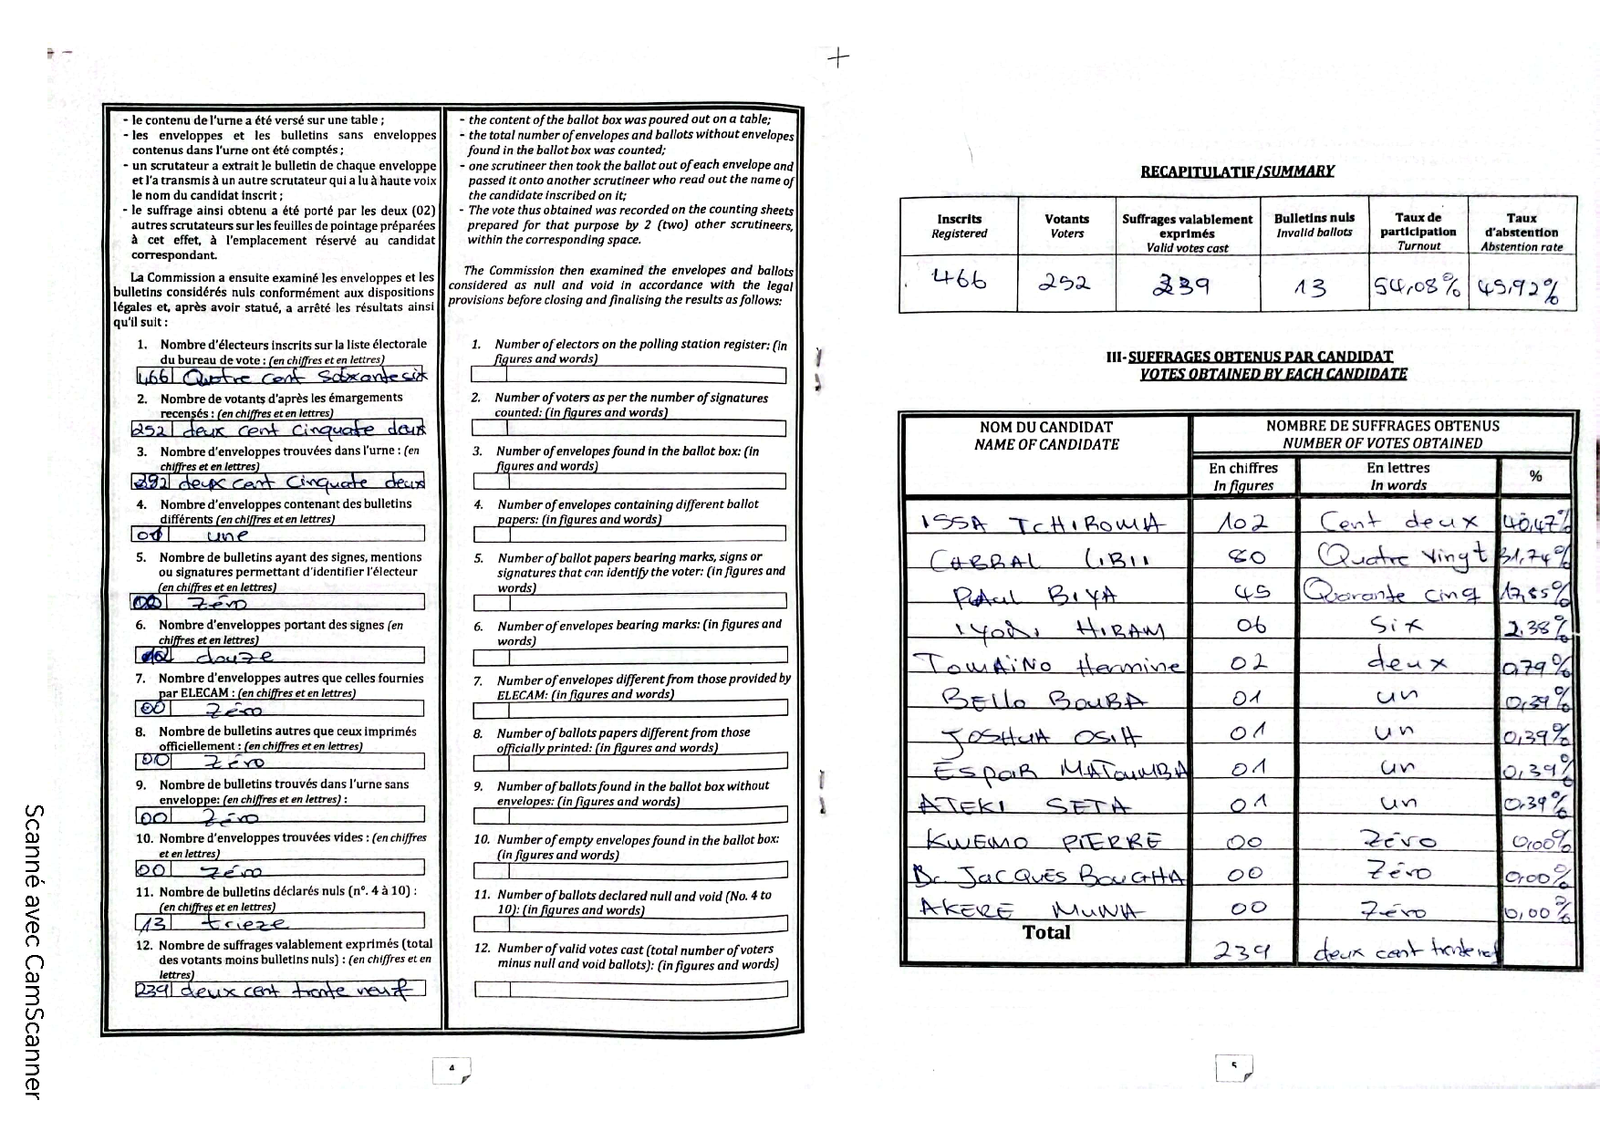 - le contenu de l'urne a été versé sur une table ;
- les enveloppes et les bulletins sans enveloppes
contenus dans l'urne ont été comptés ;
- un scrutateur a extrait le bulletin de chaque enveloppe
et l'a transmis à un autre scrutateur qui a lu à haute voix
le nom du candidat inscrit ;
- le suffrage ainsi obtenu a été porté par les deux (02)
autres scrutateurs sur les feuilles de pointage préparées
à cet effet, à l'emplacement réservé au candidat
correspondant.
La Commission a ensuite examiné les enveloppes et les
bulletins considérés nuls conformément aux dispositions
légales et, après avoir statué, a arrêté les résultats ainsi
qu'il suit :
1. Nombre d'électeurs inscrits sur la liste électorale
du bureau de vote : (en chiffres et en lettres)
466 Quatre cent Soixante six
2. Nombre de votants d'après les émargements
recensés : (en chiffres et en lettres)
252 deux cent cinquate deux
3. Nombre d'enveloppes trouvées dans l'urne : (en
chiffres et en lettres)
252 deux cent Cinquate deux
4. Nombre d'enveloppes contenant des bulletins
différents (en chiffres et en lettres)
01 une
5. Nombre de bulletins ayant des signes, mentions
ou signatures permettant d'identifier l'électeur
(en chiffres et en lettres)
00 Zéro
6. Nombre d'enveloppes portant des signes (en
chiffres et en lettres)
12 douze
7. Nombre d'enveloppes autres que celles fournies
par ELECAM : (en chiffres et en lettres)
00 Zéro
8. Nombre de bulletins autres que ceux imprimés
officiellement : (en chiffres et en lettres)
00 Zéro
9. Nombre de bulletins trouvés dans l'urne sans
enveloppe: (en chiffres et en lettres) :
00 Zéro
10. Nombre d'enveloppes trouvées vides : (en chiffres
et en lettres)
00 Zéro
11. Nombre de bulletins déclarés nuls (n°. 4 à 10) :
(en chiffres et en lettres)
13 trieze
12. Nombre de suffrages valablement exprimés (total
des votants moins bulletins nuls) : (en chiffres et en
lettres)
239 deux cent trente neuf
- the content of the ballot box was poured out on a table;
- the total number of envelopes and ballots without envelopes
found in the ballot box was counted;
- one scrutineer then took the ballot out of each envelope and
passed it onto another scrutineer who read out the name of
the candidate inscribed on it;
- The vote thus obtained was recorded on the counting sheets
prepared for that purpose by 2 (two) other scrutineers,
within the corresponding space.
The Commission then examined the envelopes and ballots
considered as null and void in accordance with the legal
provisions before closing and finalising the results as follows:
1. Number of electors on the polling station register: (in
figures and words)
2. Number of voters as per the number of signatures
counted: (in figures and words)
3. Number of envelopes found in the ballot box: (in
figures and words)
4. Number of envelopes containing different ballot
papers: (in figures and words)
5. Number of ballot papers bearing marks, signs or
signatures that can identify the voter: (in figures and
words)
6. Number of envelopes bearing marks: (in figures and
words)
7. Number of envelopes different from those provided by
ELECAM: (in figures and words)
8. Number of ballots papers different from those
officially printed: (in figures and words)
9. Number of ballots found in the ballot box without
envelopes: (in figures and words)
10. Number of empty envelopes found in the ballot box:
(in figures and words)
11. Number of ballots declared null and void (No. 4 to
10): (in figures and words)
12. Number of valid votes cast (total number of voters
minus null and void ballots): (in figures and words)
4
RECAPITULATIF/SUMMARY
Inscrits Registered Votants Voters Suffrages valablement exprimés Valid votes cast Bulletins nuls Invalid ballots Taux de participation Turnout Taux d'abstention Abstention rate
466 252 239 13 54,08% 45,92%
III- SUFFRAGES OBTENUS PAR CANDIDAT
VOTES OBTAINED BY EACH CANDIDATE
NOM DU CANDIDAT NOMBRE DE SUFFRAGES OBTENUS
NAME OF CANDIDATE NUMBER OF VOTES OBTAINED
En chiffres En lettres %
In figures In words
ISSA TCHIROMA 102 Cent deux 40,47%
CABRAL LIBII 80 Quatre vingt 31,74%
PAul BIYA 45 Quarante cinq 17,85%
IYODI HIRAM 06 Six 2.38%
TOMAÏNO Hermine 02 deux 0,79%
BEllo BOUBA 01 un 0,39%
JOSHUA OSIH 01 un 0,39%
Espoir MATOUMBA 01 un 0,39%
ATEKI SETA 01 un 0,39%
KWEMO PIERRE 00 Zéro 0,00%
JACQUES BOUGHA 00 Zéro 0,00%
AKERE MUNA 00 Zéro 0,00%
Total 239 deux cent
5
Scanné avec CamScanner